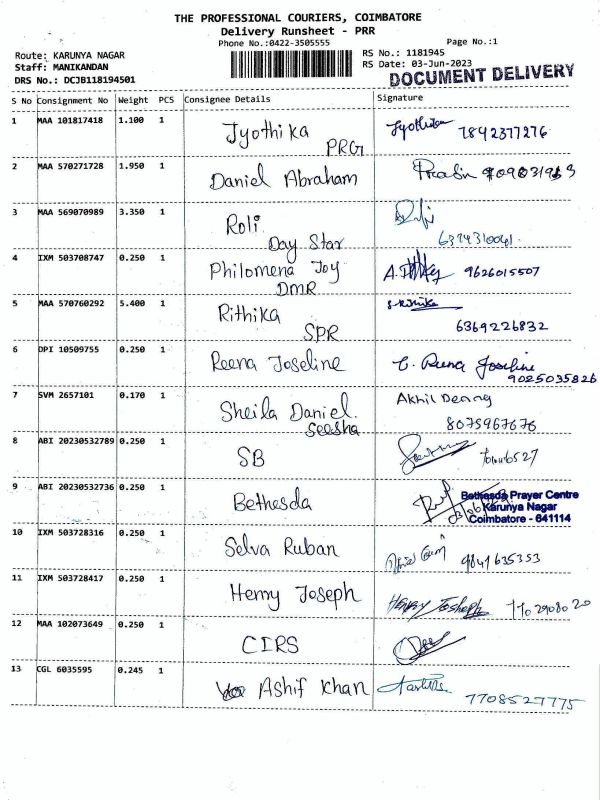 THE PROFESSIONAL COURIERS, COIMBATORE
Delivery Runsheet - PRR
Phone No.:0422-3505555
Page No.:1
Route: KARUNYA NAGAR
RS No.: 1181945
Staff: MANIKANDAN
RS Date: 03-Jun-2023
DRS No.: DCJB118194501
DOCUMENT DELIVERY
S No Consignment No Weight PCS Consignee Details Signature
1 MAA 101817418 1.100 1 Jyothika Jyothika 7842377276
PRG
2 MAA 570271728 1.950 1 Daniel Abraham
3 MAA 569070989 3.350 1 Roli
Day Star
4 IXM 503708747 0.250 1 Philomena Joy 9626015507
DMR
5 MAA 570760292 5.400 1 Rithika S Rithika
SPR 6369226832
6 DPI 10509755 0.250 1 Reena Joseline C. Reena Joseline
9025035826
7 SVM 2657101 0.170 1 Sheila Daniel. Akhil
Seesha 8075967676
8 ABI 20230532789 0.250 1 SB
9 ABI 20230532736 0.250 1 Bethesda Bethesda Prayer Centre
Karunya Nagar
Coimbatore - 641114
10 IXM 503728316 0.250 1 Selva Ruban 9841635353
11 IXM 503728417 0.250 1 Henry Joseph Henry Joseph
12 MAA 102073649 0.250 1 CIRS
13 CGL 6035595 0.245 1 Ashif Khan
7708527775